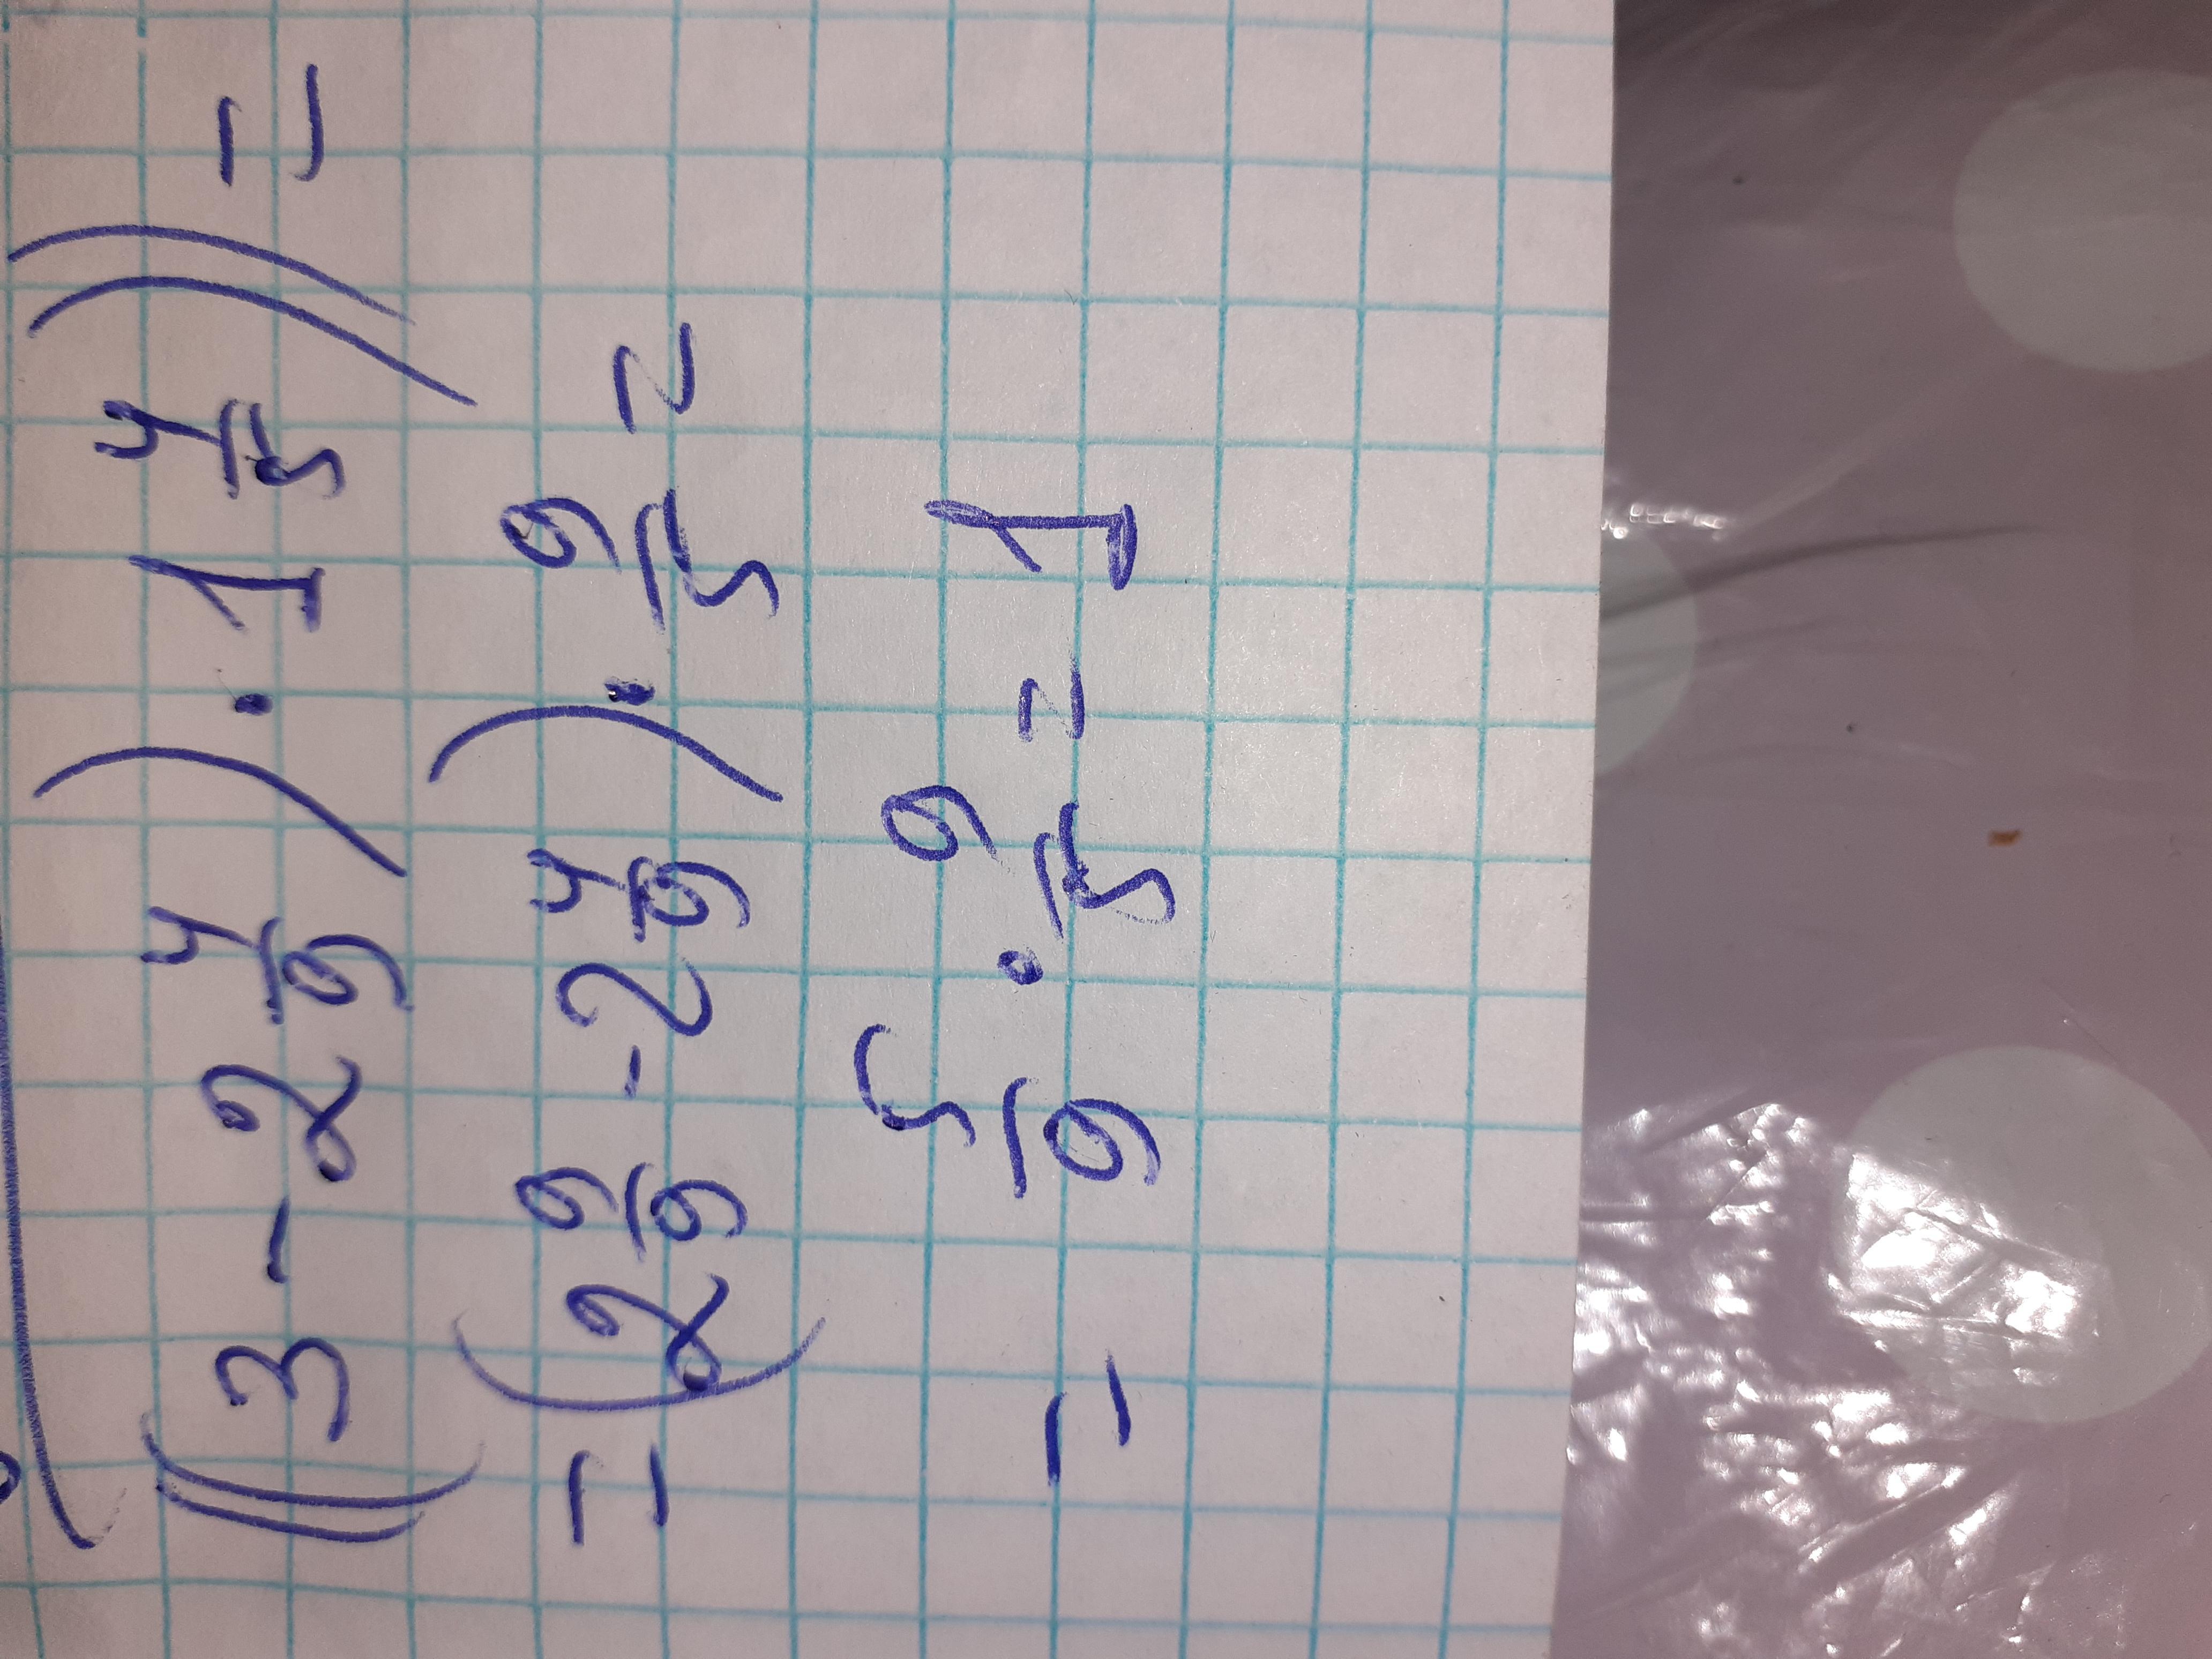 ((3 - 2 4/9) · 1 4/5)) =
= (2 9/9 - 2 4/9) · 9/5 =
= 5/9 · 9/5 = 1